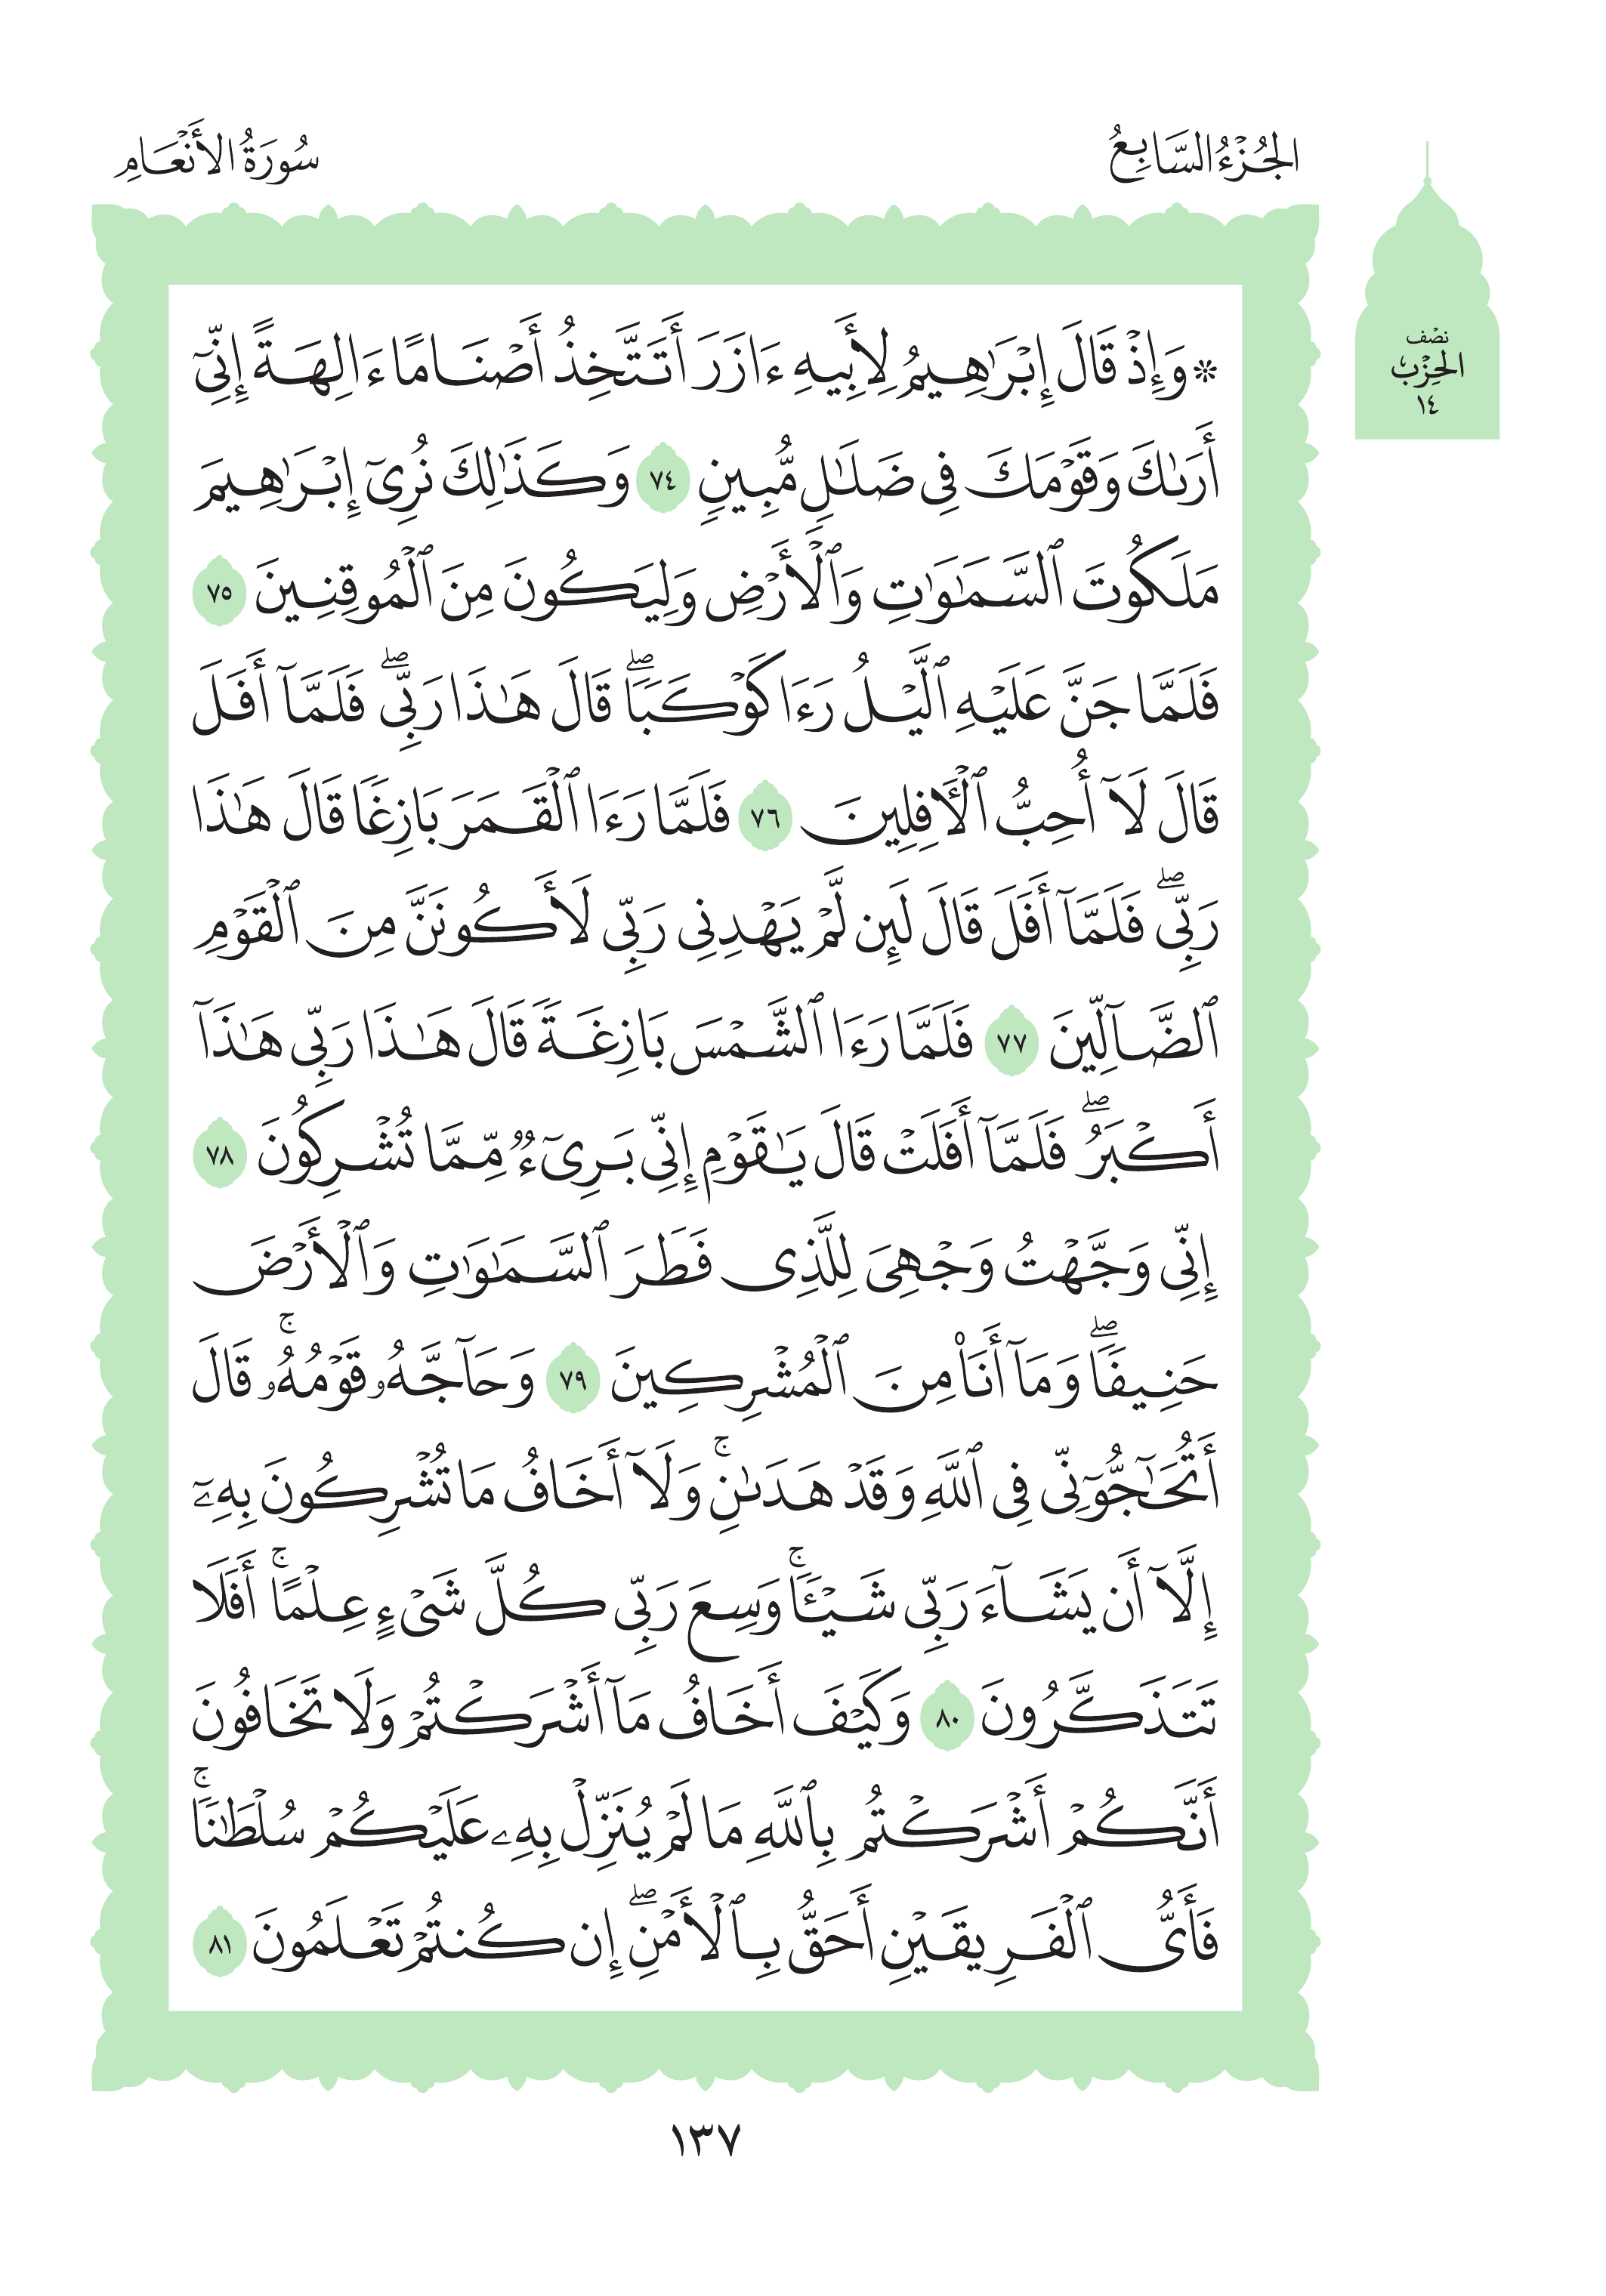 الجُزْءُ السَّابِعُ
سُورَةُ الأَنْعَامِ
نصف
الحِزْب
١٤
۞ وَإِذْ قَالَ إِبْرَٰهِيمُ لِأَبِيهِ ءَازَرَ أَتَتَّخِذُ أَصْنَامًا ءَالِهَةً إِنِّىٓ
أَرَىٰكَ وَقَوْمَكَ فِى ضَلَٰلٍ مُّبِينٍ ٧٤ وَكَذَٰلِكَ نُرِىٓ إِبْرَٰهِيمَ
مَلَكُوتَ ٱلسَّمَٰوَٰتِ وَٱلْأَرْضِ وَلِيَكُونَ مِنَ ٱلْمُوقِنِينَ ٧٥
فَلَمَّا جَنَّ عَلَيْهِ ٱلَّيْلُ رَءَا كَوْكَبًاۖ قَالَ هَٰذَا رَبِّىۖ فَلَمَّآ أَفَلَ
قَالَ لَآ أُحِبُّ ٱلْأَفِلِينَ ٧٦ فَلَمَّا رَءَا ٱلْقَمَرَ بَازِغًا قَالَ هَٰذَا
رَبِّىۖ فَلَمَّآ أَفَلَ قَالَ لَئِن لَّمْ يَهْدِنِى رَبِّى لَأَكُونَنَّ مِنَ ٱلْقَوْمِ
ٱلضَّآلِّينَ ٧٧ فَلَمَّا رَءَا ٱلشَّمْسَ بَازِغَةً قَالَ هَٰذَا رَبِّى هَٰذَآ
أَكْبَرُۖ فَلَمَّآ أَفَلَتْ قَالَ يَٰقَوْمِ إِنِّى بَرِىٓءٌ مِّمَّا تُشْرِكُونَ ٧٨
إِنِّى وَجَّهْتُ وَجْهِىَ لِلَّذِى فَطَرَ ٱلسَّمَٰوَٰتِ وَٱلْأَرْضَ
حَنِيفًاۖ وَمَآ أَنَا۠ مِنَ ٱلْمُشْرِكِينَ ٧٩ وَحَآجَّهُۥ قَوْمُهُۥۚ قَالَ
أَتُحَٰٓجُّوٓنِّى فِى ٱللَّهِ وَقَدْ هَدَىٰنِۚ وَلَآ أَخَافُ مَا تُشْرِكُونَ بِهِۦٓ
إِلَّآ أَن يَشَآءَ رَبِّى شَيْـًٔاۚ وَسِعَ رَبِّى كُلَّ شَىْءٍ عِلْمًاۚ أَفَلَا
تَتَذَكَّرُونَ ٨٠ وَكَيْفَ أَخَافُ مَآ أَشْرَكْتُمْ وَلَا تَخَافُونَ
أَنَّكُمْ أَشْرَكْتُم بِٱللَّهِ مَا لَمْ يُنَزِّلْ بِهِۦ عَلَيْكُمْ سُلْطَٰنًاۚ
فَأَىُّ ٱلْفَرِيقَيْنِ أَحَقُّ بِٱلْأَمْنِۖ إِن كُنتُمْ تَعْلَمُونَ ٨١
١٣٧